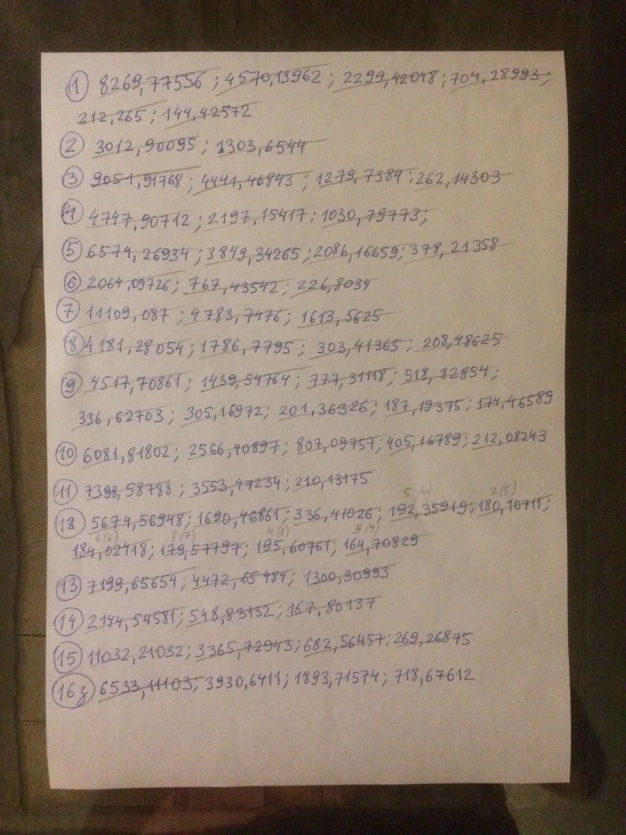 ① 8269,77556; 4570,13962; 2299,42048; 704,28993;
212,265; 144,42572
② 3012,90095; 1303,6544
③ 9051,91768; 4441,46843; 1279,7384; 262,14303
④ 4747,90712; 2197,15417; 1030,79773;
⑤ 6574,26934; 3849,34265; 2086,16659; 378,21358
⑥ 2064,09726; 767,43542; 226,8034
⑦ 11109,087; 4783,7476; 1613,5625
⑧ 4181,28054; 1786,7795; 303,41365; 208,48625
⑨ 4517,70861; 1439,54764; 777,31118; 518,82854;
336,62703; 305,16972; 201,36326; 187,19375; 174,46589
⑩ 6081,81802; 2566,40897; 807,09757; 405,16789; 212,08243
⑪ 7393,58788; 3553,47234; 210,13175
5(4) 7(5)
⑫ 5674,56948; 1690,46861; 336,41026; 192,35919; 180,70711;
6(6) 8(7) 4(8) 9(9)
184,02418; 179,57797; 195,60761; 164,70829
⑬ 7199,65654; 4472,65484; 1300,30993
⑭ 2144,54581; 548,83132; 167,80137
⑮ 11032,21032; 3365,72943; 682,56457; 269,26875
⑯ 6533,11103; 3930,6411; 1893,71574; 718,67612